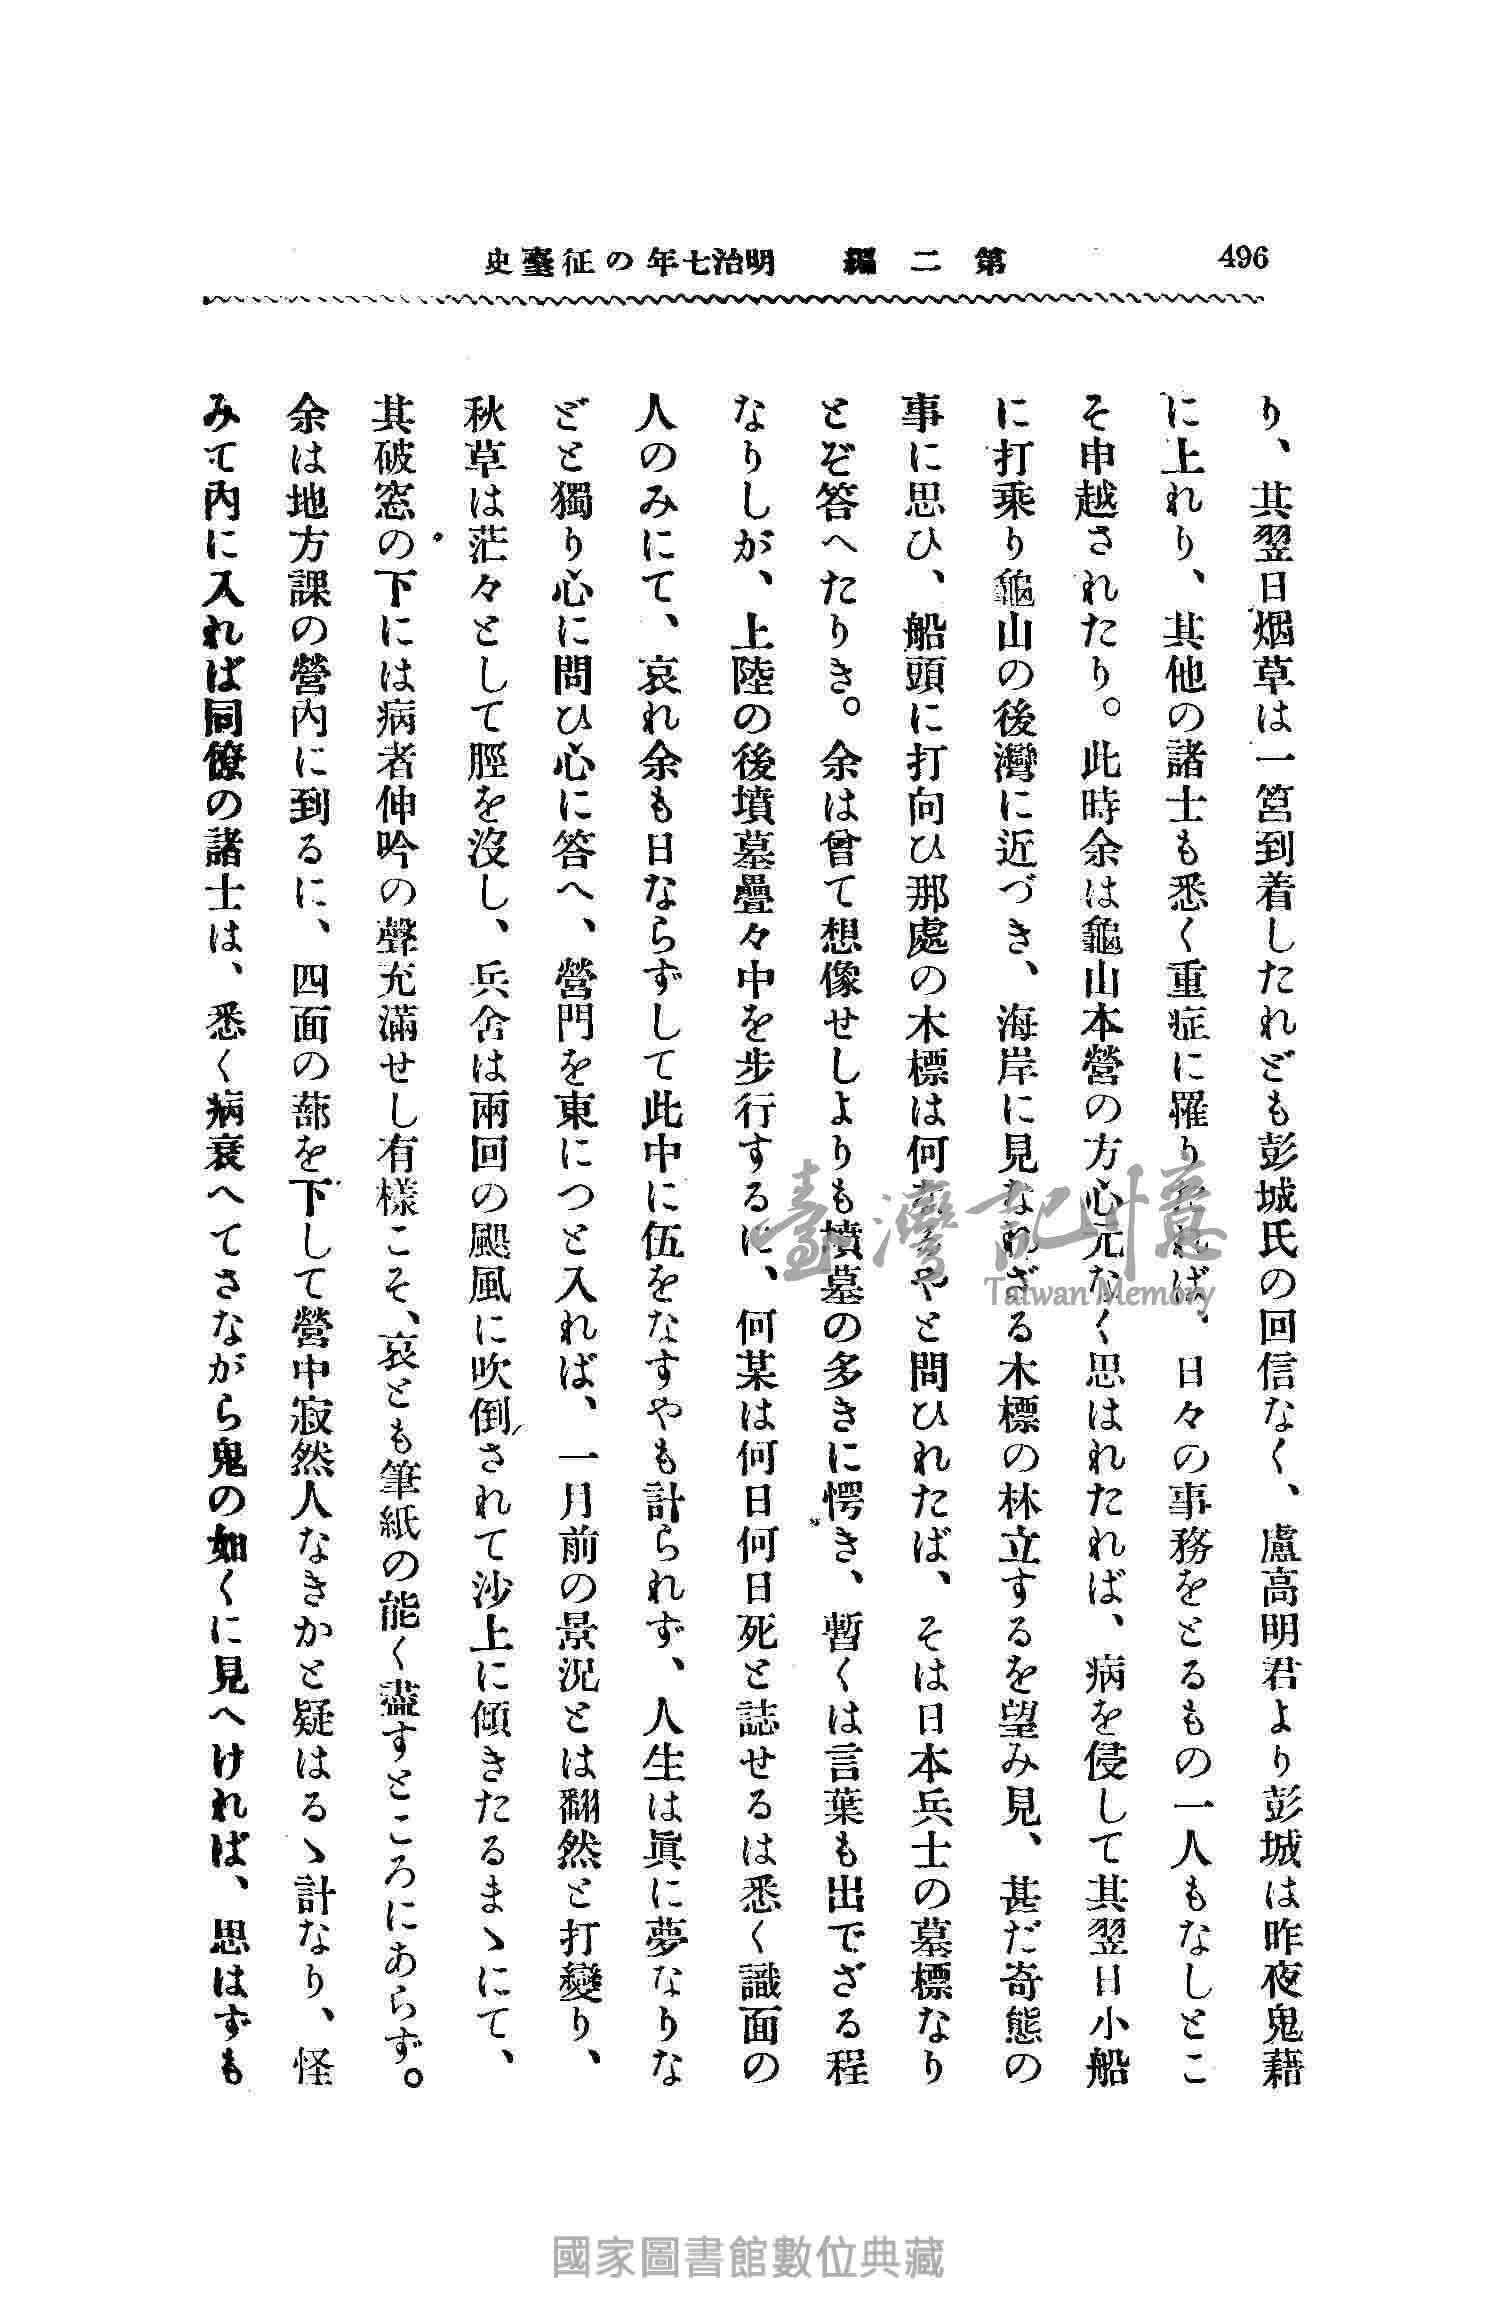 496
第二編 明治七年の征臺史
り、其翌日烟草は一筥到着したれども彭城氏の回信なく、盧高明君より彭城は昨夜鬼藉
に上れり、其他の諸士も悉く重症に罹りたれば、日々の事務をとるもの一人もなしとこ
そ申越されたり。此時余は龜山本營の方心元なく思はれたれば、病を侵して其翌日小船
に打乘り龜山の後灣に近づき、海岸に見なれざる木標の林立するを望み見、甚だ奇態の
事に思ひ、船頭に打向ひ那處の木標は何なるやと問ひれたば、そは日本兵士の墓標なり
とぞ答へたりき。余は曾て想像せしよりも墳墓の多きに愕き、暫くは言葉も出でざる程
なりしが、上陸の後墳墓疊々中を步行するに、何某は何日何日死と誌せるは悉く識面の
人のみにて、哀れ余も日ならずして此中に伍をなすやも計られず、人生は眞に夢なりな
どと獨り心に問ひ心に答へ、營門を東につと入れば、一月前の景況とは翻然と打變り、
秋草は茫々として脛を沒し、兵舍は兩回の颶風に吹倒されて沙上に傾きたるまゝにて、
其破窓の下には病者伸吟の聲充滿せし有樣こそ、哀とも筆紙の能く盡すところにあらず。
余は地方課の營內に到るに、四面の蔀を下して營中寂然人なきかと疑はるゝ計なり、怪
みて內に入れば同僚の諸士は、悉く病衰へてさながら鬼の如くに見へければ、思はずも
臺灣記憶
Taiwan Memory
國家圖書館數位典藏